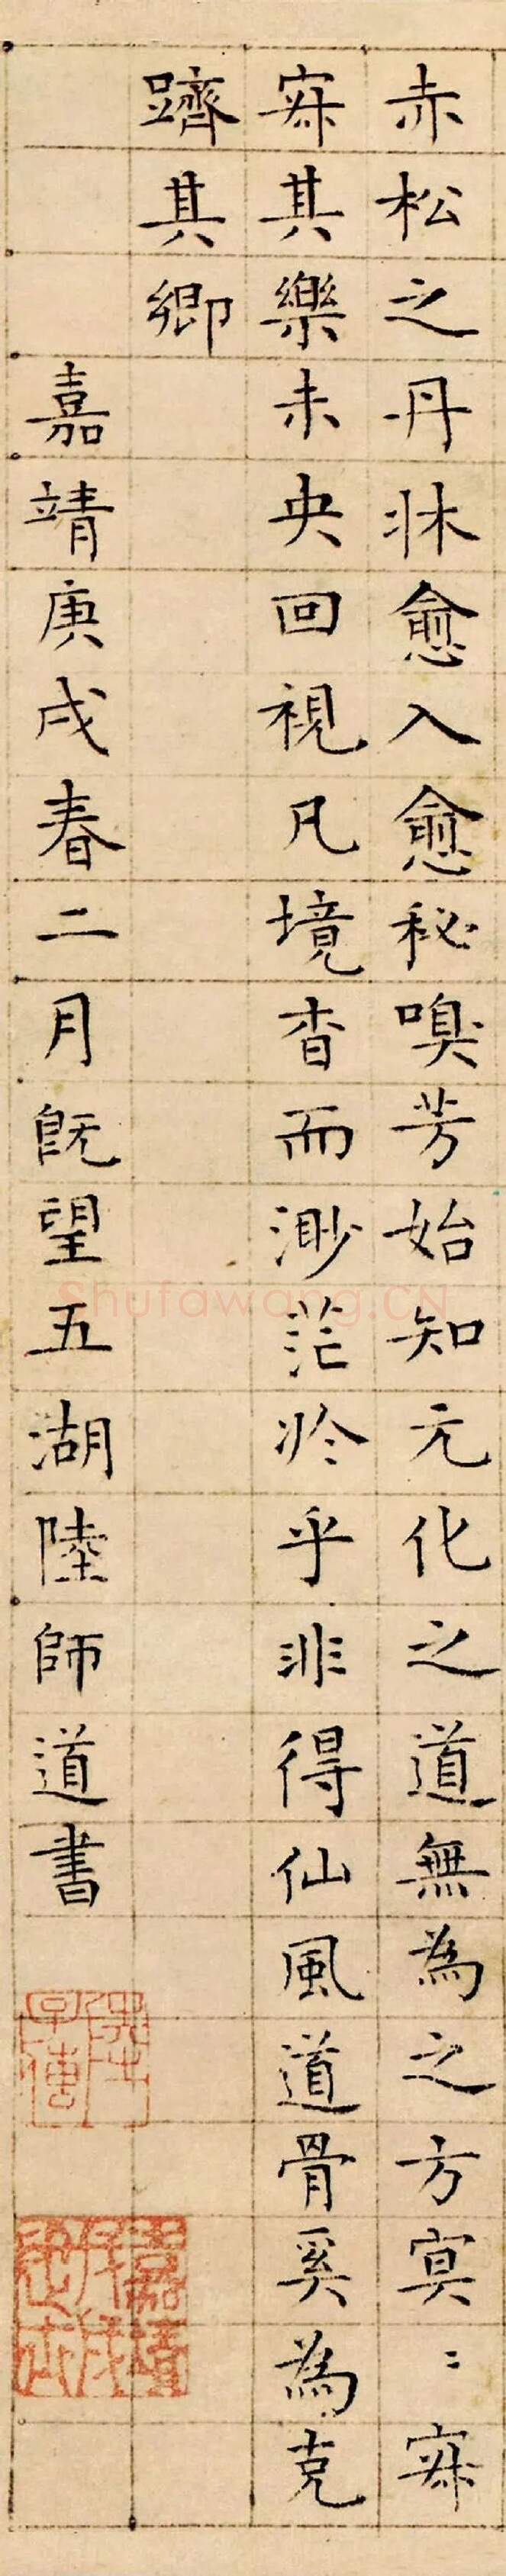 赤松之丹牀愈入愈秘嗅芳始知元化之道無為之方寞〻寂
寂其樂未央回視凡境杳而渺茫於乎非得仙風道骨奚為克
躋其卿
嘉靖庚戌春二月既望五湖陸師道書
Shufawang.CN